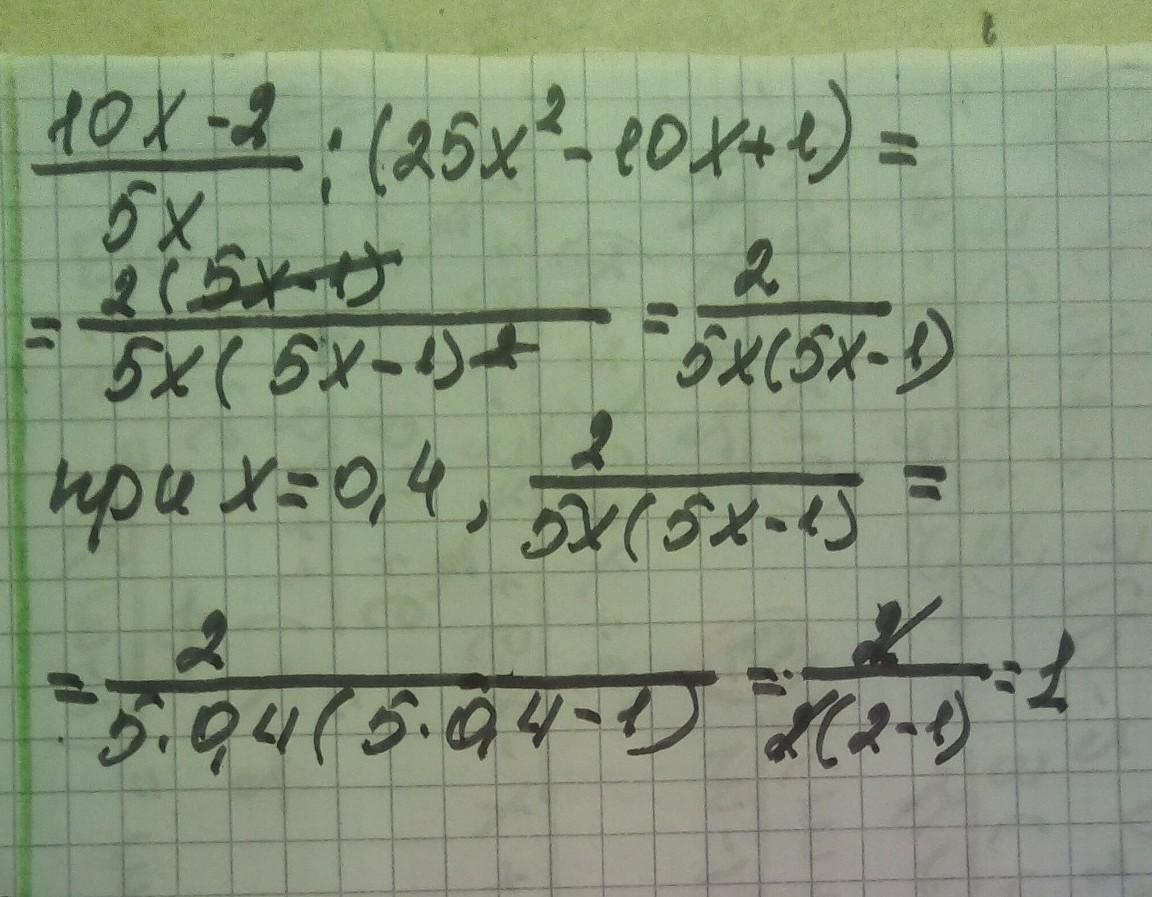 10x-2
/5x : (25x² - 10x + 1) =
= 2(5x-1)/5x(5x-1)2 = 2/5x(5x-1)
при x=0,4, 2/5x(5x-1) =
= 2/5·0,4(5·0,4-1) = 2/2(2-1) = 1